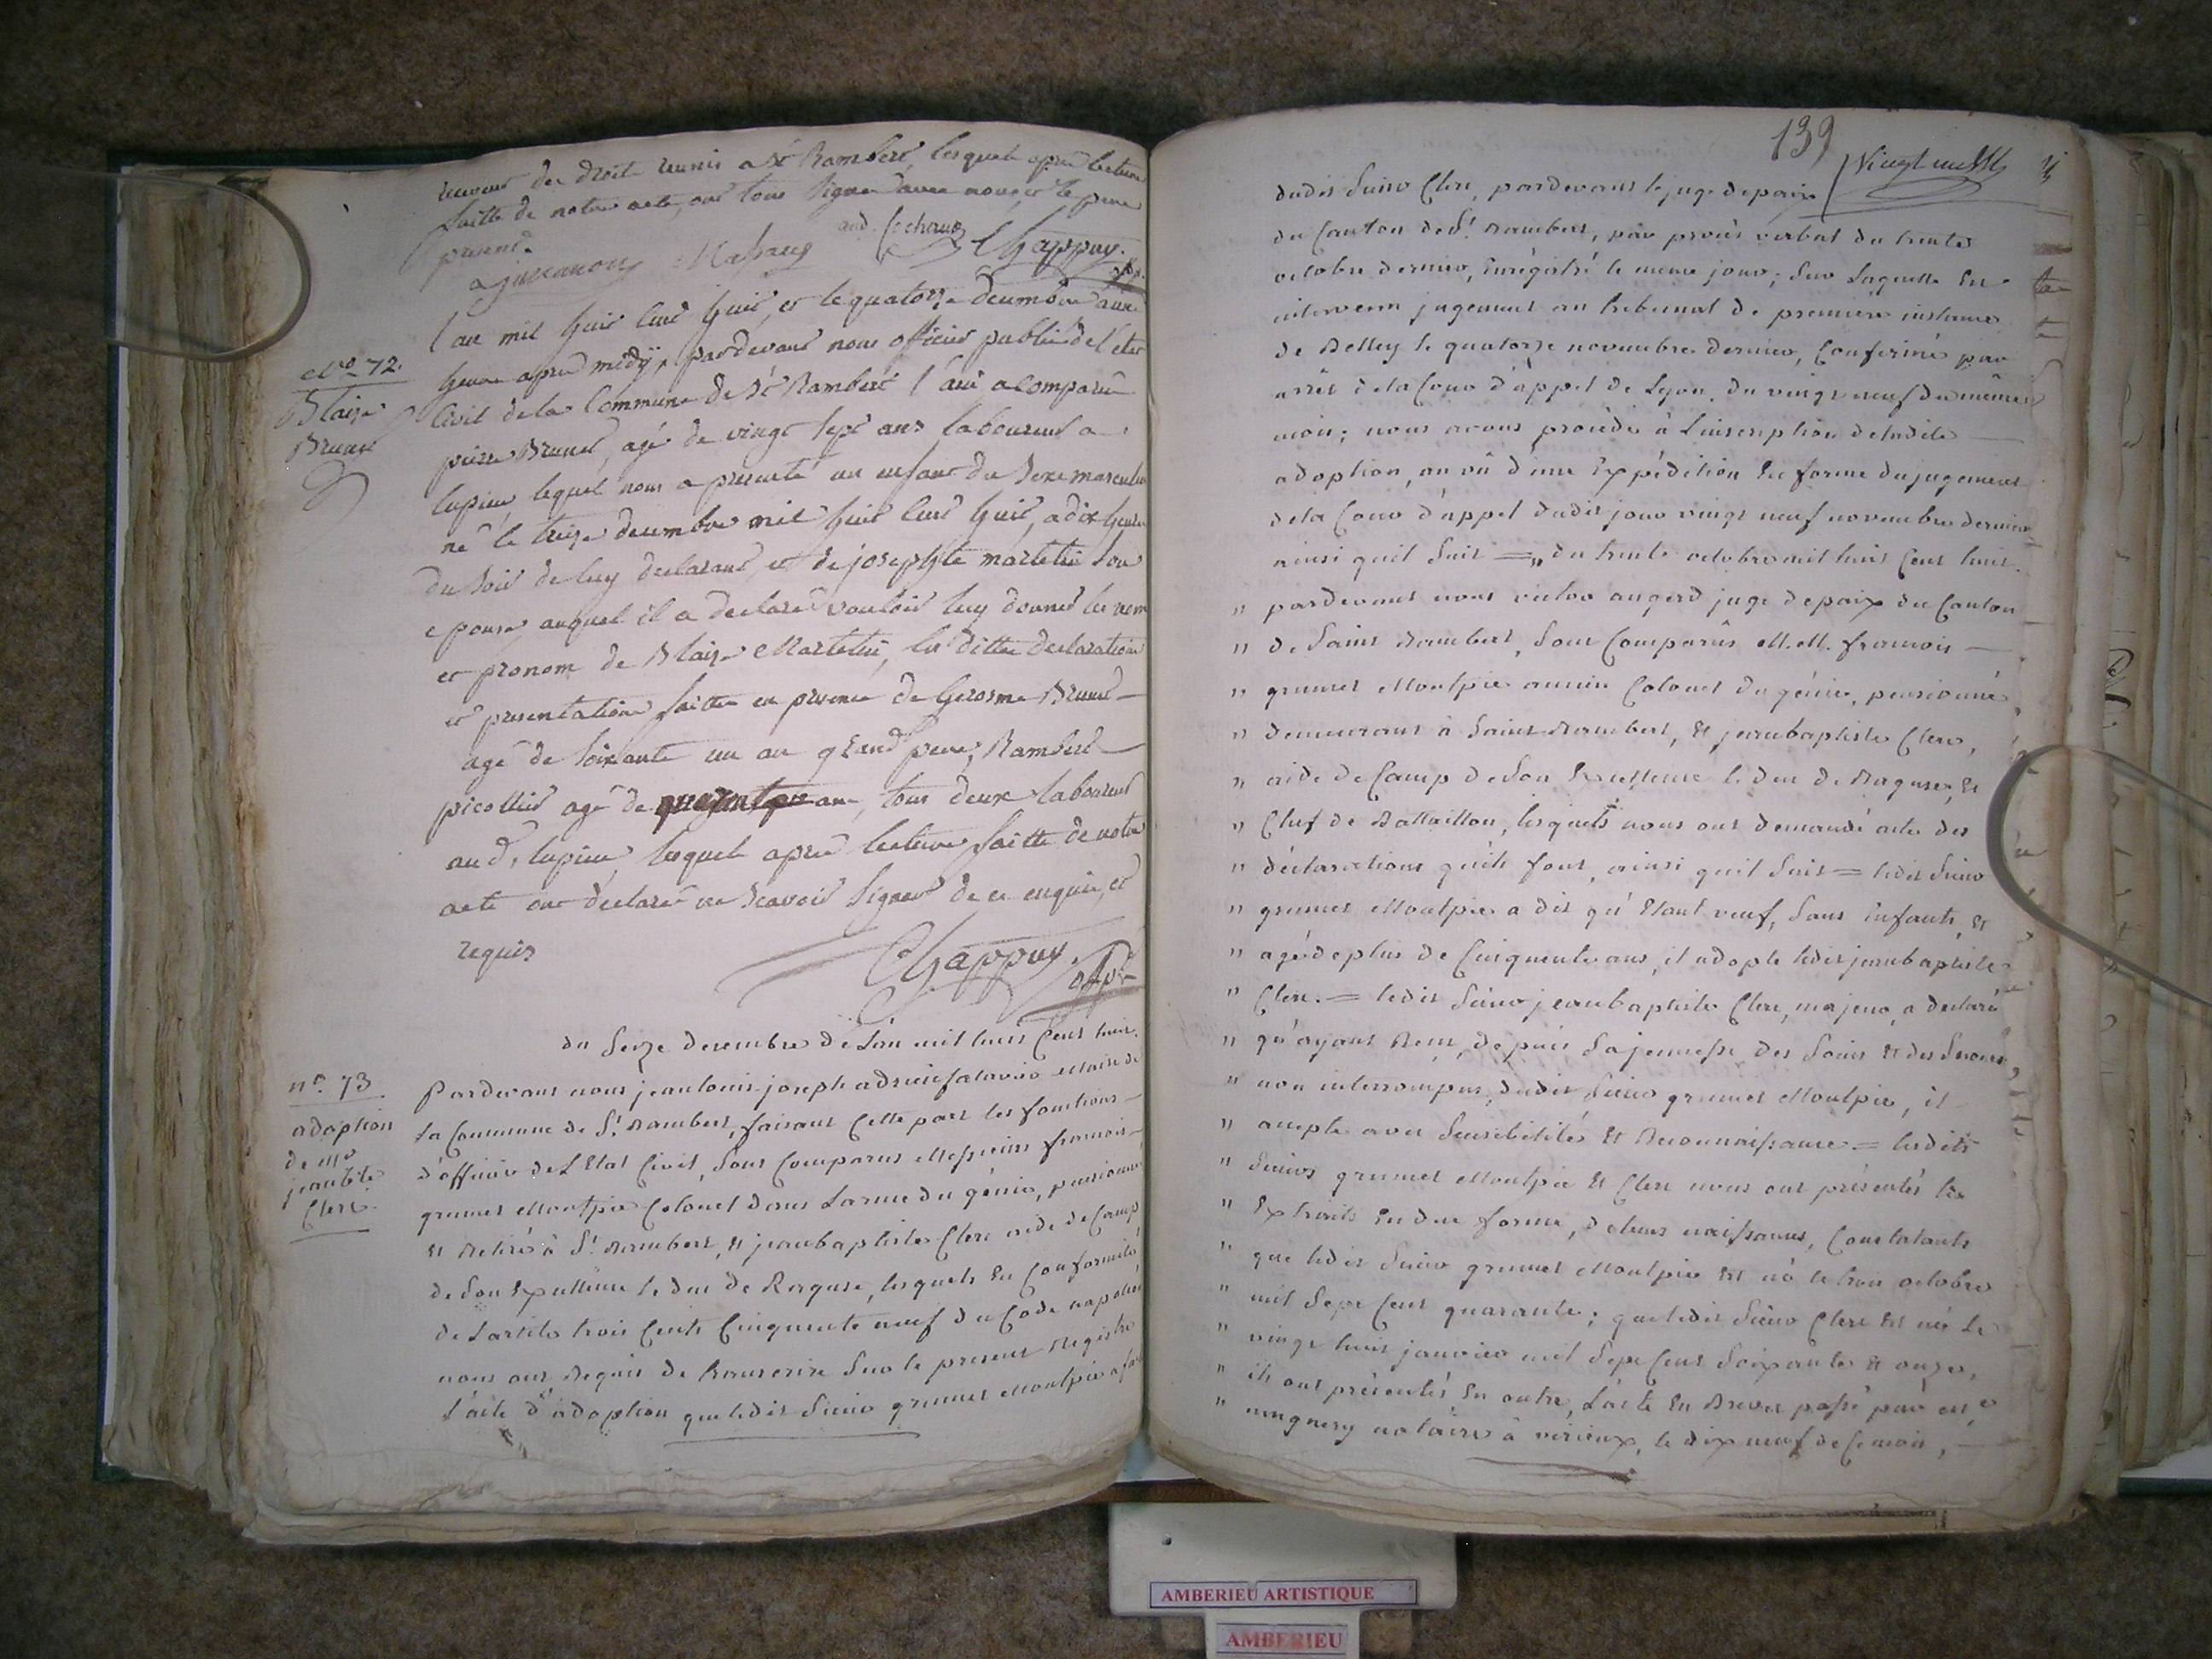 receveur des droits reunis a St Rambert, lesquels apres lecture
faitte de notre acte, ont tous signer avec nous, et le pere
present.
and. Chappuy.
L'an mil huit cent huit, et le quatorze decembre a une
No 72.
Blaise
Brunet
heure apres midy, pardevant nous officier public de l'etat
civil de la commune de St Rambert l'ain a comparu
pierre Brunet, agé de vingt sept ans laboureur a
lupieu, lequel nous a presenté un enfant du sexe masculin
né le treize decembre mil huit cent huit, a dix heures
du soir de luy declarant, et de josephte martelin son
epouse, auquel il a declaré vouloir luy donner les nom
et pronom de Blaise Martelin, les dittes declaration
et presentation faitte en presence de Gerosme Brunet
agé de soixante un an grand pere, Rambert
picollier agé de ans, tous deux laboureur
aud. lupieu, lesquels apres lecture faitte de notre
acte ont déclaré ne scavoir signer de ce enquis, et
requis
Chappuy
du Seize decembre de L'an mil huit Cent huit.
no. 73
adoption
de mr
jean bte
Clerc.
Pardevant nous jean louis joseph adrien Maire de
la Commune de St. Rambert, faisant Cette part les fonctions
d'officier de L'Etat Civil, sont Comparus Messieurs françois
grumet Montpié Colonel dans L'arme du génie, pensionné
Et Retiré à St. Rambert, Et jean baptiste Clerc aide de Camp
de son Excellence le duc de Raguse, lesquels En Conformité
de L'article trois Cents Cinquante neuf du Code napoléon
nous ont Requis de transcrire sur le présent Registre
L'acte d'adoption que ledit Sieur grumet Montpié a fait
139
Vingt
dudit Sieur Clerc, pardevant le juge de paix
du Canton de St. Rambert, par procès verbal du trente
octobre dernier, Enrégistré le même jour; sur Laquelle Est
intervenu jugement au tribunal de première instance
de Belley le quatorze novembre dernier, Confirmé par
arrêt de la Cour d'appel de Lyon, du vingt neuf du même
mois; nous avons procédé à L'inscription de ladite
adoption, au vû d'une Expédition En forme du jugement
de la Cour d'appel dudit jour vingt neuf novembre dernier
ainsi qu'il suit = " du trente octobre mil huit Cent huit.
" pardevant nous victor augerd juge de paix du Canton
" de Saint Rambert, sont Comparûs M.M. françois
" grumet Montpié ancien Colonel du génie, pensionné
" demeurant à Saint Rambert, Et jean baptiste Clerc,
" aide de Camp de son Excellence le duc de Raguse, Et
" Chef de Bataillon, lesquels nous ont demandé acte des
" déclarations qu'ils font, ainsi qu'il suit = ledit Sieur
" grumet Montpié a dit qu'Etant veuf, sans Enfants, Et
" agé de plus de Cinquante ans, il adopte ledit jean baptiste
" Clerc. = ledit Sieur jean baptiste Clerc, majeur, a déclaré
" qu'ayant Reçu, depuis sa jeunesse des soins Et des secours,
" non interrompus, dudit Sieur grumet Montpié, il
" accepte avec sensibilité Et Reconnaissance = lesdits
" Sieurs grumet Montpié Et Clerc nous ont présentés les
" Extraits En due forme, de leurs naissances, Constatants
" que ledit Sieur grumet Montpié Est né le trois octobre
" mil sept Cent quarante; que ledit Sieur Clerc Est né le
" vingt huit janvier mil sept Cent soixante Et onze,
" ils ont présentés En outre, L'acte En Brevet passé par
" notaire à virieux, le dix neuf de Ce mois,
AMBERIEU ARTISTIQUE
AMBERIEU